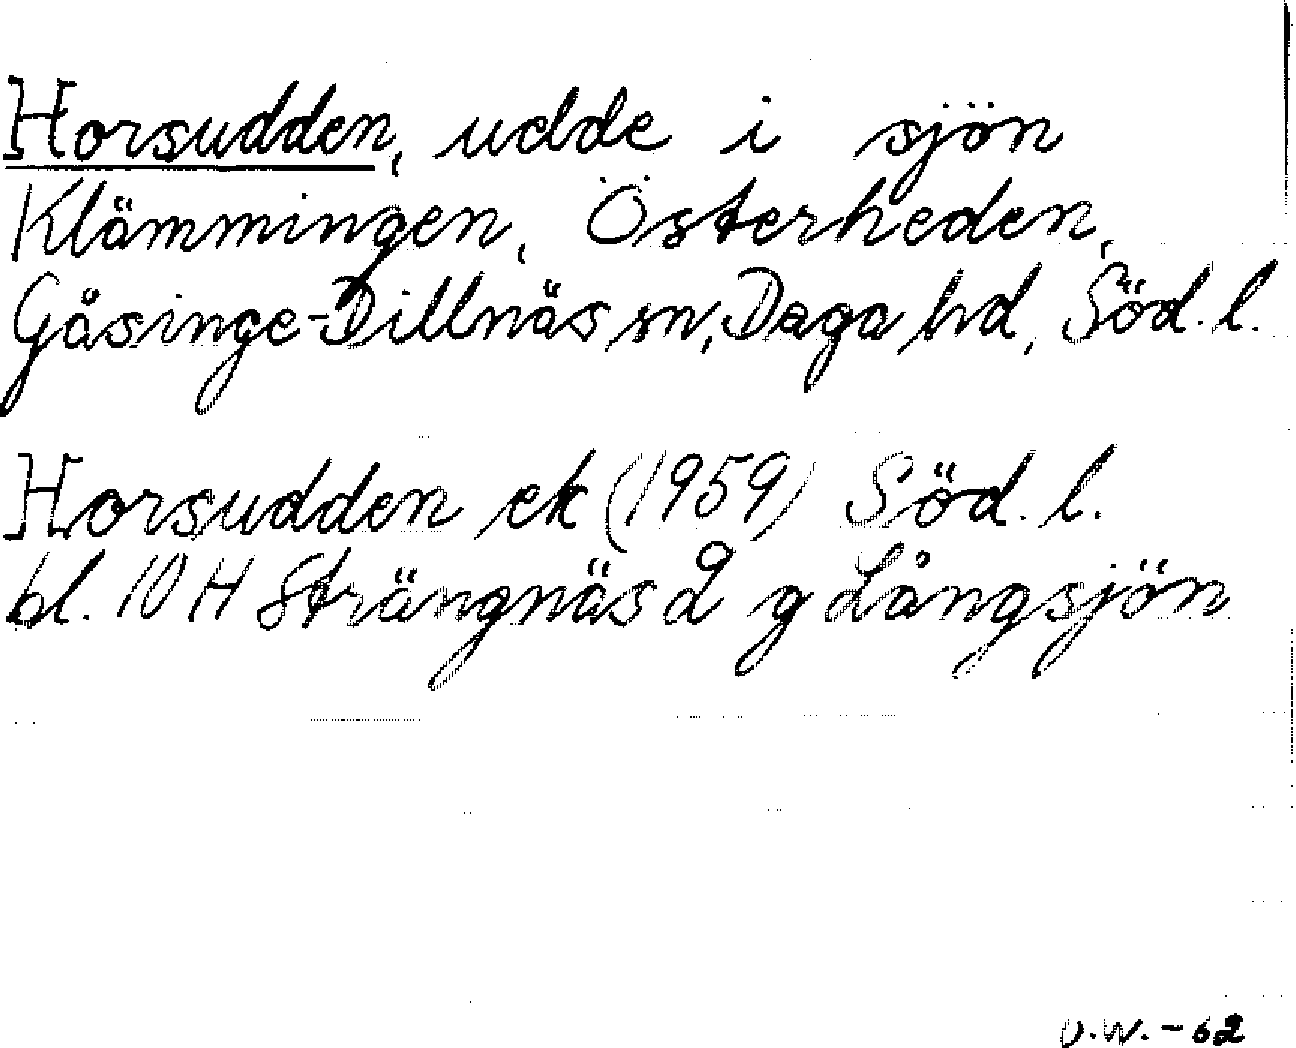 Horsudden, udde i sjön
Klämmingen, Österheden,
Gåsinge-Dillnäs sn, Daga hd, Söd. l.
Horsudden ek (1959) Söd. l.
bl. 10 H Strängnäs 2 g Långsjön
U.W. - 62